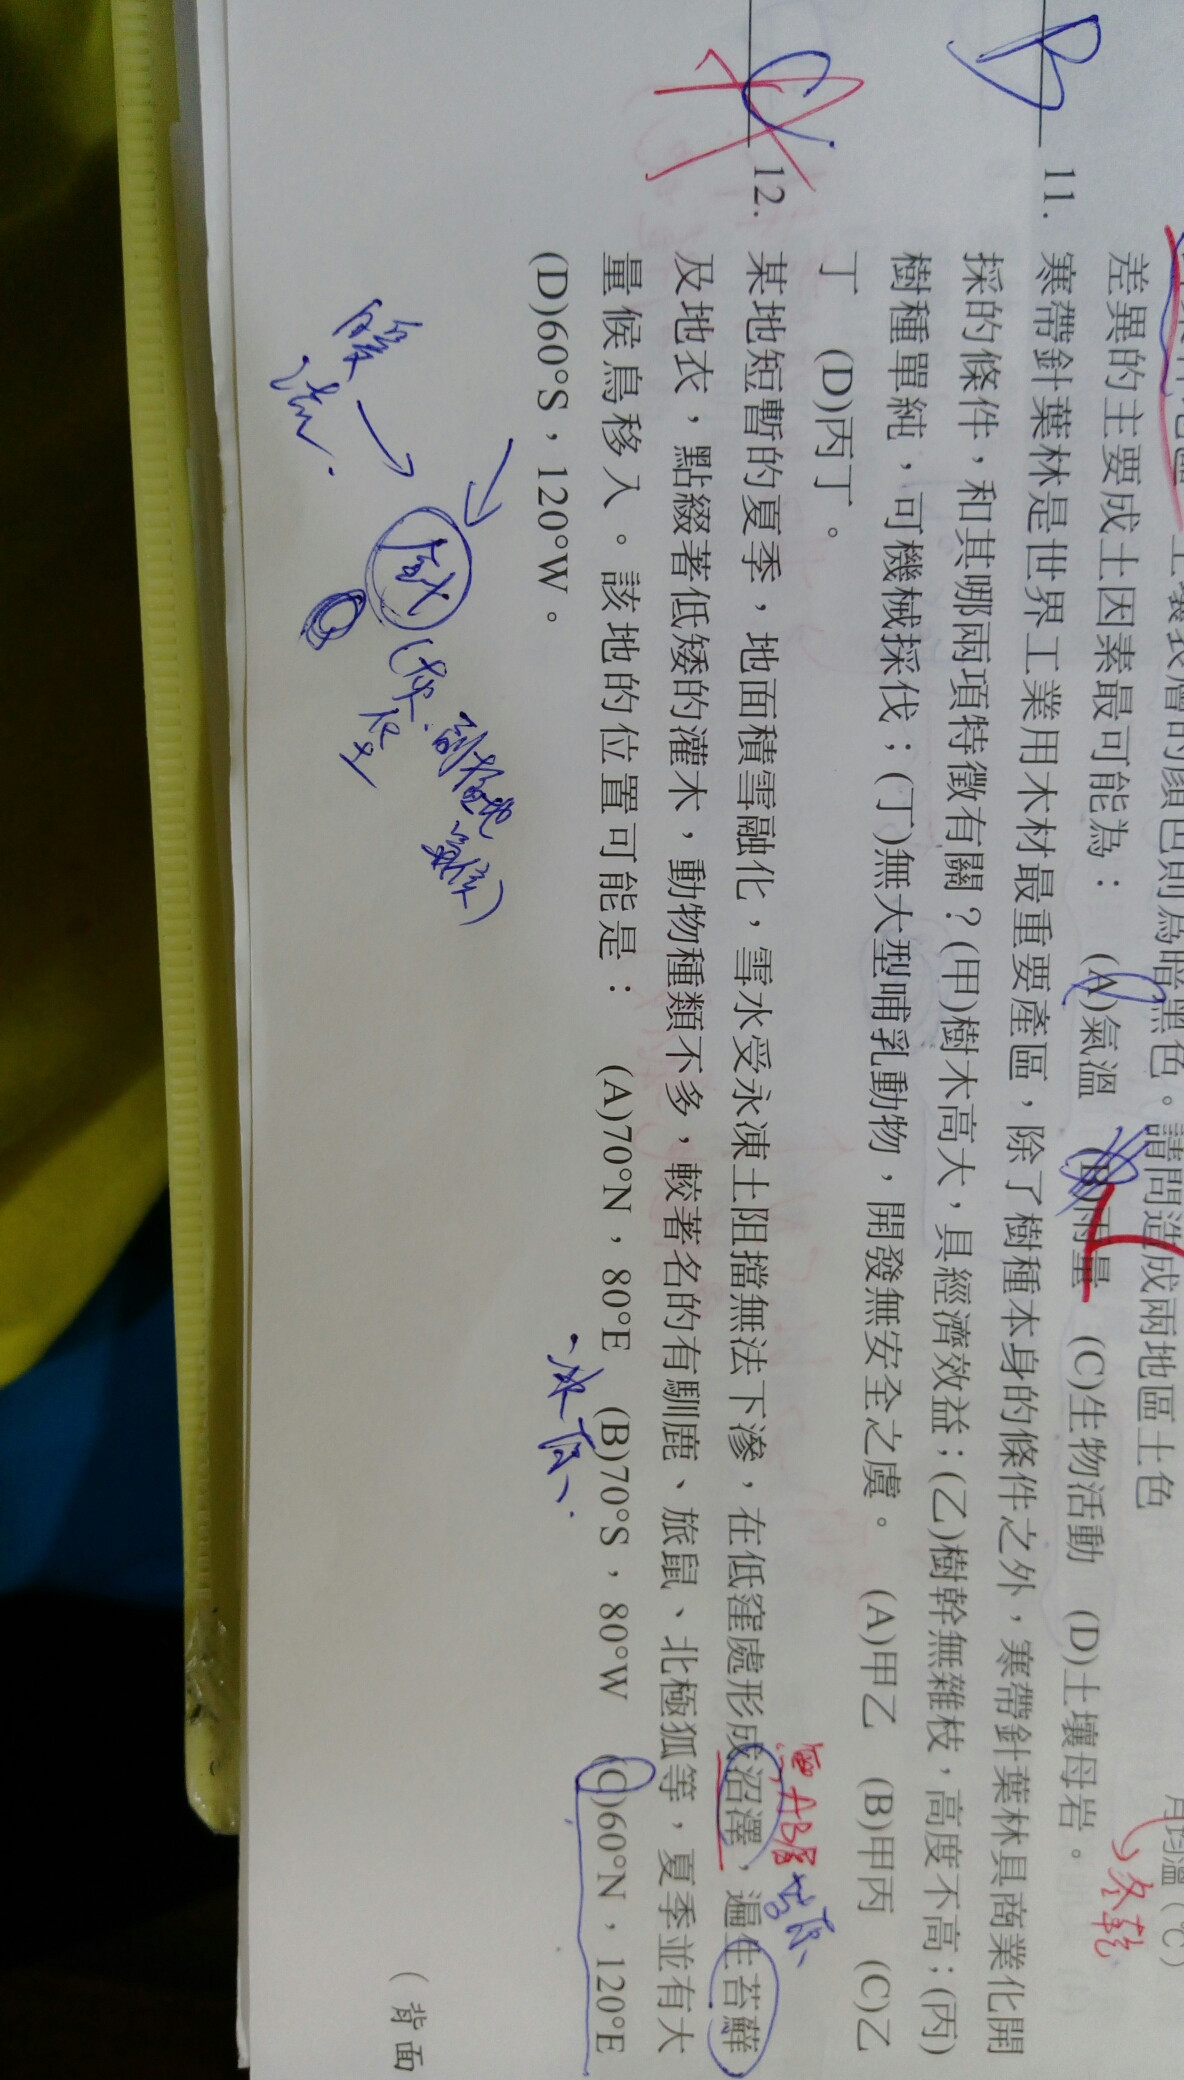 月均溫(℃)
冬乾
土壤表層的顏色則為暗黑色。請問造成兩地區土色
差異的主要成土因素最可能為： (A)氣溫 (B)雨量 (C)生物活動 (D)土壤母岩。
B 11. 寒帶針葉林是世界工業用木材最重要產區，除了樹種本身的條件之外，寒帶針葉林具商業化開
採的條件，和其哪兩項特徵有關？(甲)樹木高大，具經濟效益；(乙)樹幹無雜枝，高度不高；(丙)
樹種單純，可機械採伐；(丁)無大型哺乳動物，開發無安全之虞。 (A)甲乙 (B)甲丙 (C)乙
丁 (D)丙丁。
無AB層
苔原
C 12. 某地短暫的夏季，地面積雪融化，雪水受永凍土阻擋無法下滲，在低窪處形成沼澤，遍生苔蘚
及地衣，點綴著低矮的灌木，動物種類不多，較著名的有馴鹿、旅鼠、北極狐等，夏季並有大
量候鳥移入。該地的位置可能是： (A)70°N，80°E (B)70°S，80°W (C)60°N，120°E
冰原
(D)60°S，120°W。
暖流
(背面